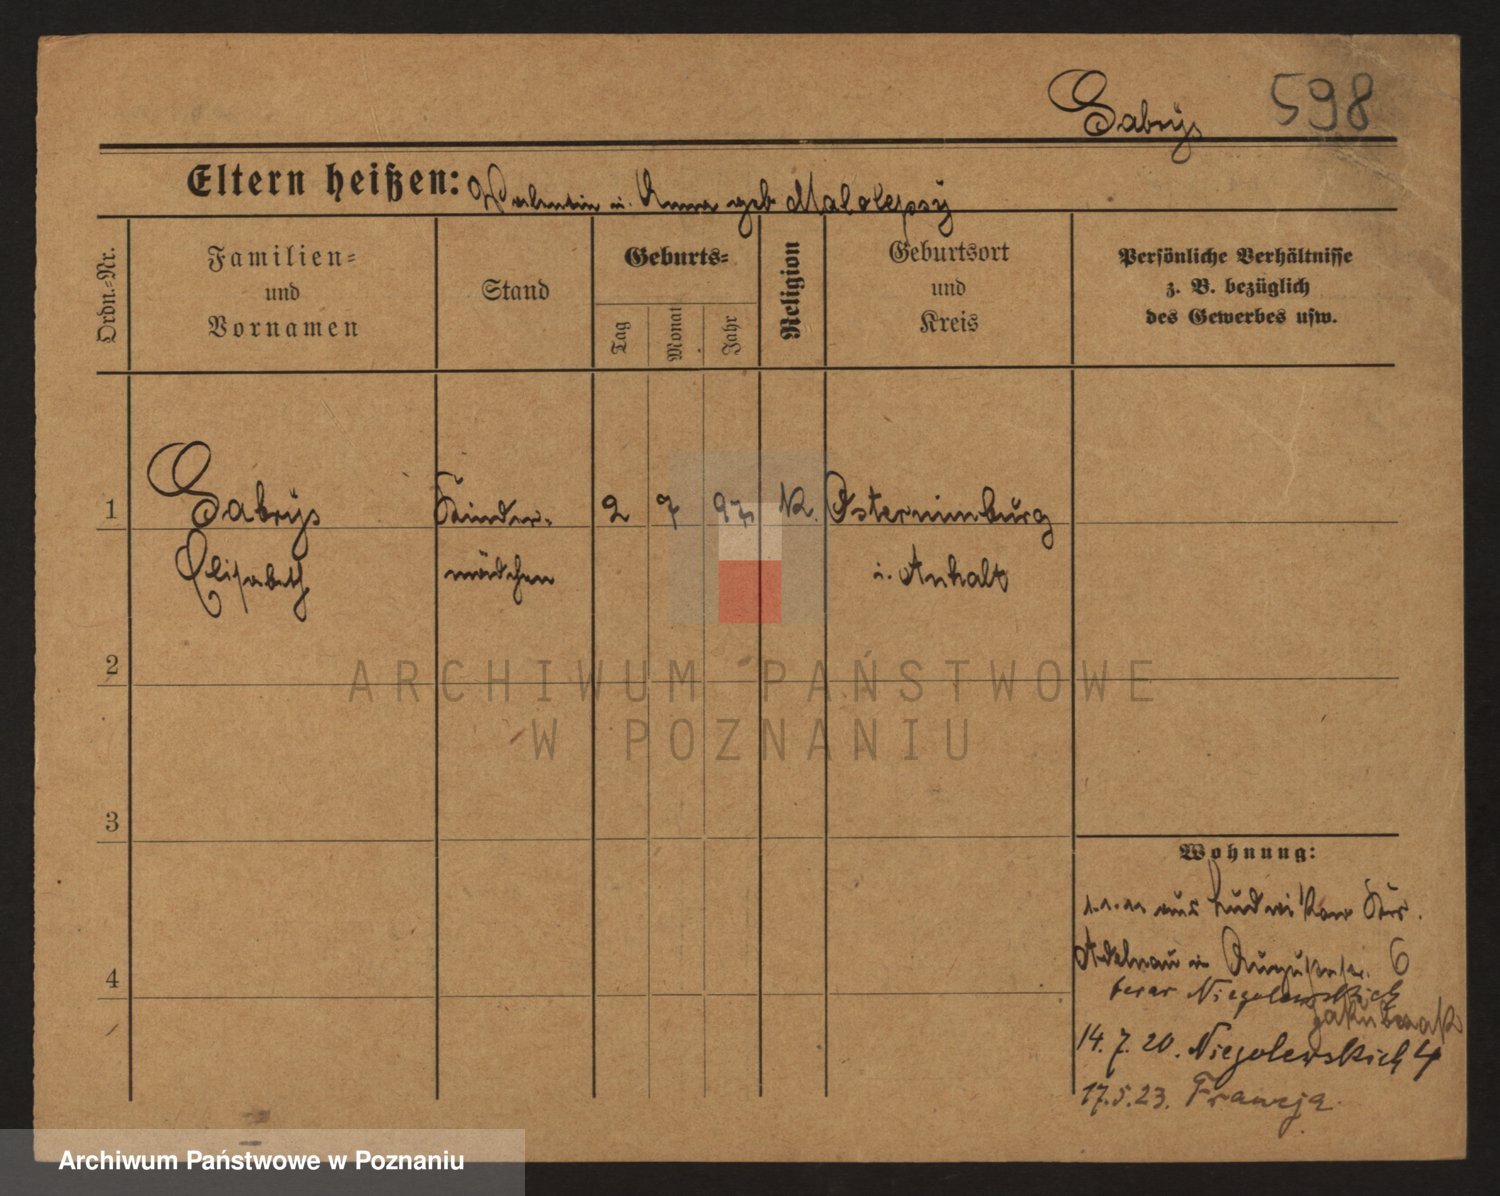 Gabrÿs 598
Eltern heißen: Valentin u. Anna geb Malolepszÿ
Ordn.-Nr.
Familien-
und
Vornamen
Stand
Geburts-
Tag
Monat
Jahr
Religion
Geburtsort
und
Kreis
Persönliche Verhältnisse
z. B. bezüglich
des Gewerbes usw.
1 Gabrÿs Kinder- 2 7 97 K. Osternienburg
Elisabeth mädchen i. Anhalt
2
3
4
Wohnung:
aus
Adelnau in 6
Niegolewskich
14. 7. 20. Niegolewskich 4
17.5.23. Francja
ARCHIWUM PAŃSTWOWE
W POZNANIU
Archiwum Państwowe w Poznaniu